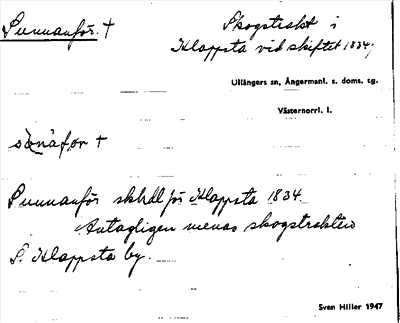 Sunnanför. +
Skogstrakt i
Klappsta vid skiftet 1834.
Ullångers sn, Ångermanl. s. doms. tg.
Västernorrl. l.
Sunnanför skhdl för Klappsta 1834.
Antagligen menas skogstrakten
S. Klappsta by.
Sven Hiller 1947